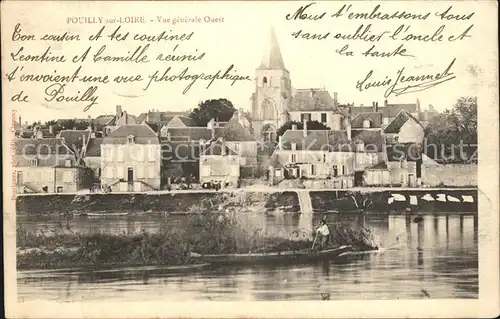 POUILLY-sur-LOIRE - Vue générale Ouest
Ton cousin et tes cousines
Léontine et Camille réunis
t'envoient une vue photographique
de Pouilly
Nous t'embrassons tous
sans oublier l'oncle et
la tante
Louis Jeannet